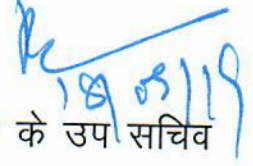 18/09/19
के उप सचिव